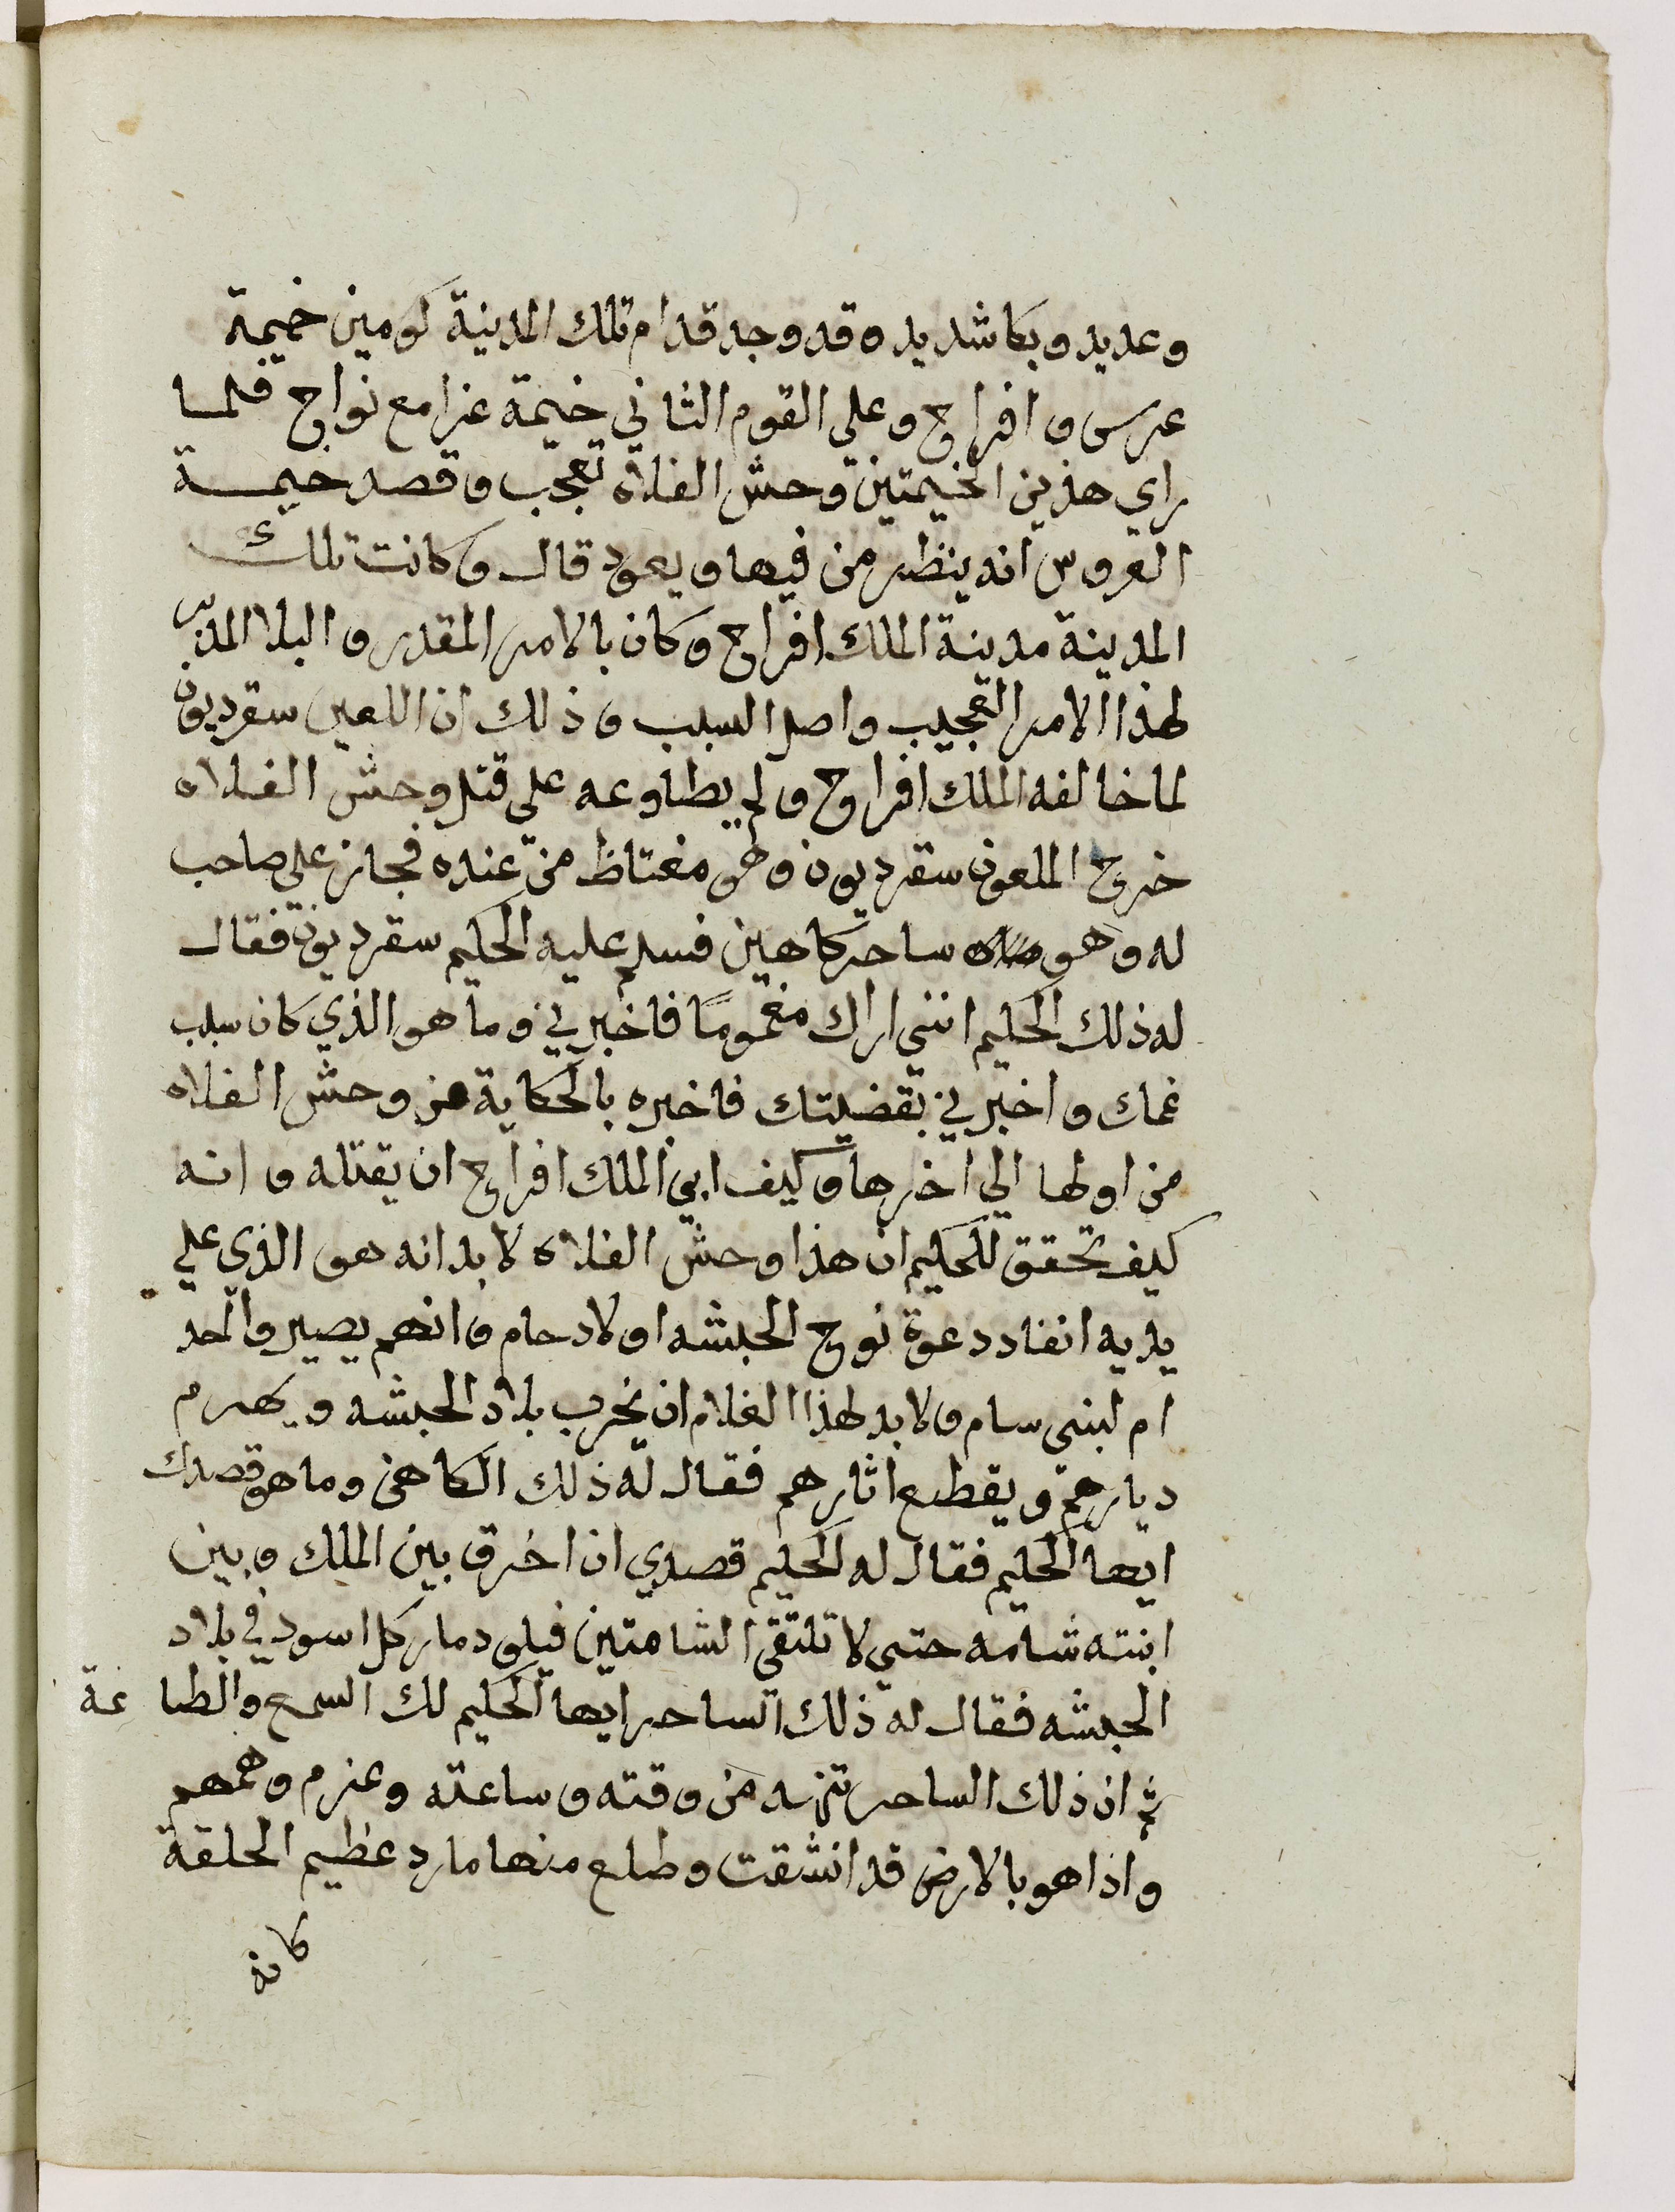 وعديد وبكا شديد وقد وجد قدام تلك المدينة كومين خيمة
عرس وافراح وعلي القوم الثاني خيمة عزا مع نواح فلما
راي هذين الخيمتين وحش الفلاه تعجب وقصد خيمة
العروس انه ينظر من فيها ويعود قال وكانت تلك
المدينة مدينة الملك افراح وكان بالامر المقدر والبلا المدبر
لهذا الامر العجيب واصل السبب وذلك ان اللعين سقرديون
لما خالفه الملك افراح ولم يطاوعه على قتل وحش الفلاه
خرج الملعون سقرديون وهو مغتاظ من عنده فجاز على صاحب
له وهو ساحر كاهين فسلم عليه الحكيم سقرديون فقال
له ذلك الحكيم انني اراك مغموما فاخبرني وما هو الذي كان سبب
غمك واخبرني بقضيتك فاخبره بالحكاية من وحش الفلاه
من اولها الي اخرها وكيف ابي الملك افراح ان يقتله وانه
كيف تحقق للحكيم ان هذا وحش الفلاه لا بد انه هو الذي علي
يديه انفاد دعوة نوح الحبشه اولاد حام وانهم يصيروا لخد
ام لبني سام ولا بد لهذا الغلام ان يخرب بلاد الحبشه ويهدم
ديارهم ويقطع اثارهم فقال له ذلك الكاهن وما هو قصدك
ايها الحكيم فقال له الحكيم قصدي ان افرق بين الملك وبين
ابنته شامه حتى لا تلتقي الشامتين فيكو دمار كل اسود في بلاد
الحبشه فقال له ذلك الساحر ايها الحكيم لك السمع والطاعة
ثم ان ذلك الساحر من وقته وساعته وعزم وهمهم
واذا هو بالارض قد انشقت وطلع منها مارد عظيم الخلقة
كانه